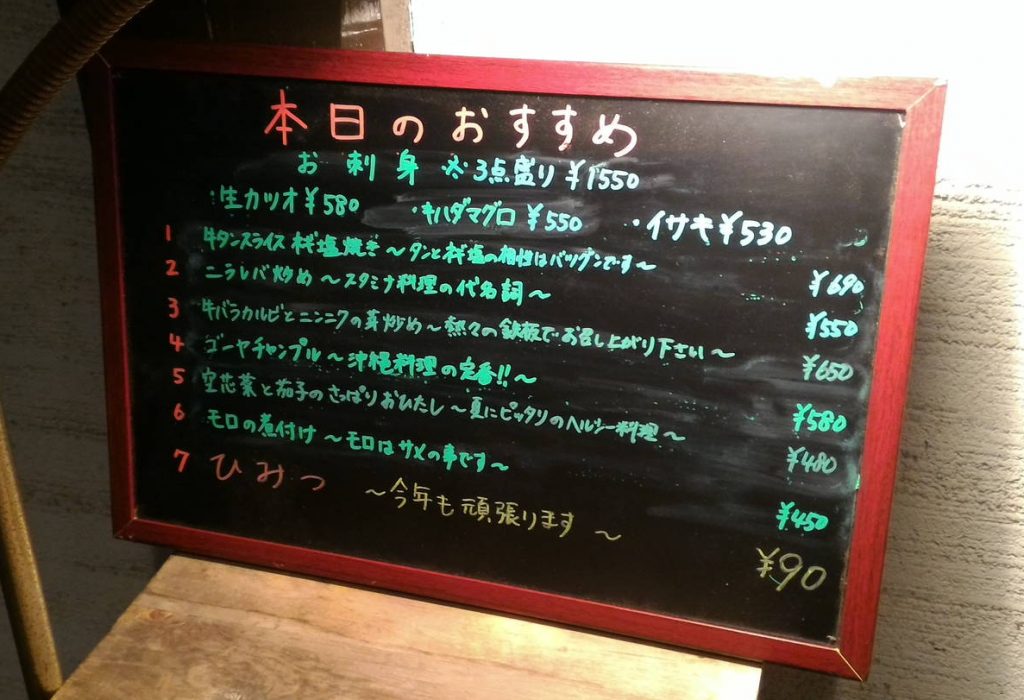 本日のおすすめ
お刺身 ※3点盛り ¥1550
・生カツオ¥580 ・キハダマグロ ¥550 ・イサキ¥530
1 牛タンスライス ネギ塩焼き 〜タンとネギ塩の相性はバツグンです〜 ¥690
2 ニラレバ炒め 〜スタミナ料理の代名詞〜 ¥550
3 牛バラカルビとニンニクの芽炒め〜熱々の鉄板でお召し上がり下さい〜 ¥650
4 ゴーヤチャンプル〜沖縄料理の定番!!〜 ¥580
5 空芯菜と茄子のさっぱりおひたし〜夏にピッタリのヘルシー料理〜 ¥480
6 モロの煮付け〜モロはサメの事です〜 ¥450
7 ひみつ 〜今年も頑張ります〜 ¥90